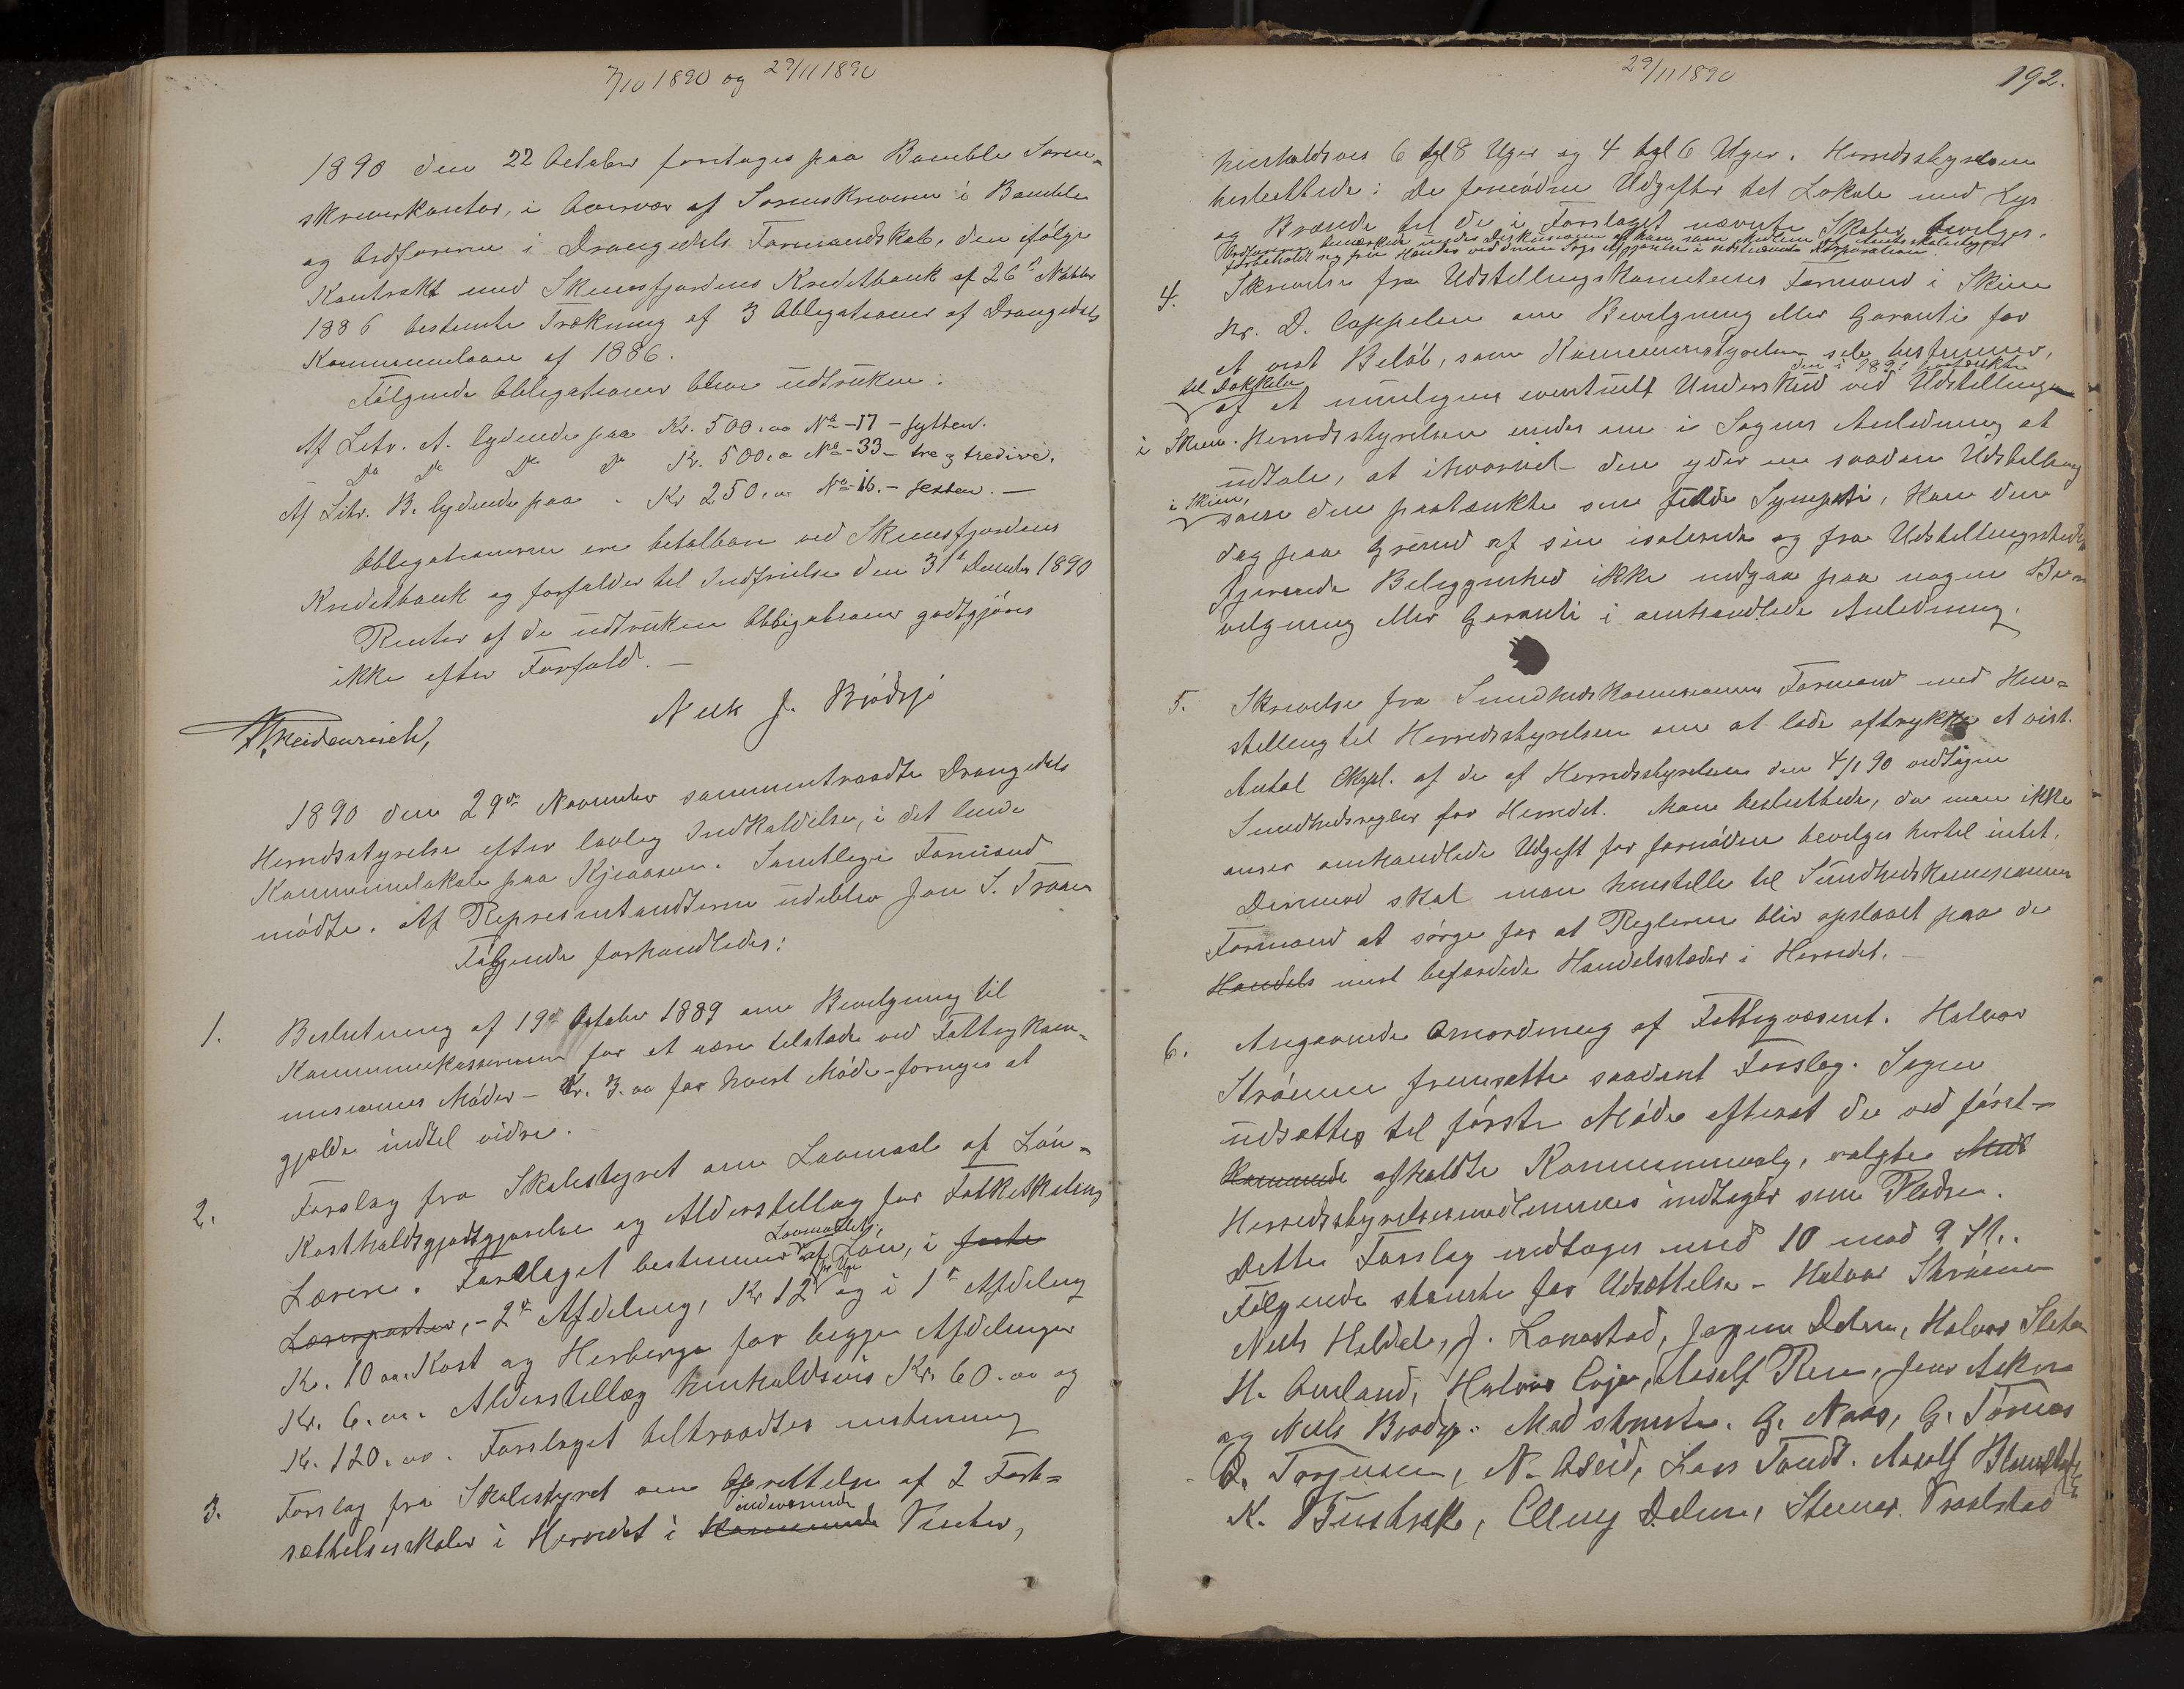 7/10 1890 og 29/11 1890
1890 den 22 October foretoges paa Bamble Soren-
skriverkontor, i Overvær af Sorenskriveren i Bamble
og Ordføreren i Drangedals Formandskab, den ifølge
Kontrakt med Skiensfjordens Kreditbank af 26de Novbr
1886 bestemte Trækning af 3 Obligationer af Drangedals
Kommunelaan af 1886.
Følgende Obligationer bleve udtrukne:
Af Litr. A. lydende paa Kr. 500.00 No - 17 - sytten.
Do Do Do Do Kr. 500.00 No - 33 - tre og tredive.
Af Litr. B. lydende paa - Kr 250.00 No 16. - sexten. -
Obligationerne ere betalbare ved Skiensfjordens
Kreditbank og forfalder til Indfrielse den 31te December 1890
Renter af de udtrukne Obligationer godtgjöres
ikke efter Forfald. -
Heidenreich, Niels J. Brödsjö
1890 den 29de November sammentraadte Drangedals
Herredsstyrelse efter lovlig Indkaldelse, i det leiede
Kommunelokale paa Kjeaasen. Samtlige Formænd
mødte. Af Representandterne udeblev Jon S. Traaen
Følgende forhandledes:
1. Beslutning af 19de October 1889 om Bevilgning til
Kommunekassereren for at være tilstede ved Fattigkom-
missionens Møder - Kr. 3.00 for hvert Møde - fornyes at
gjælde indtil videre.
2. Forslag fra Skolestyret om Lovmaal af Løn-
Kostholdsgodtgjørelse og Alderstillæg for Folkeskolens
Lærere. Forslaget bestemmer Lovmaalets af Løn, i faste
Lærerposter, - 2de Afdeling, Kr 12 pr Uge og i 1ste Afdeling
Kr. 10.00. Kost og Herberge for begge Afdelinger
Kr. 6.00. Alderstillæg henholdsvis Kr. 60.00 og
Kr. 120.00. Forslaget tiltraadtes enstemmig
3. Forslag fra Skolestyret om Oprettelse af 2 Fort-
sættelsesskoler i Herredet i Kommende indeværende Vinter,
29/11 1890
192.
henholdsvis 6 til 8 Uger og 4 til 6 Uger. Herredsstyrelsen
besluttede: De fornødne Udgifter til Lokale med Lys
og Brænde til de i Forslaget nævnte Skoler bevilges.
Ordføreren bemærkede under Diskussionen at han som Medlem af Amtsskolestyret
forbeholdt sig frie Hænder ved denne Sags Afgjørelse i nævnte Korporation.
4. Skrivelse fra Udstillingskomiteens Formand i Skien
Hr. D. Cappelen om Bevilgning eller Garanti for
et vist Beløb, som Kommunestyrelsen selv bestemmer,
til Dækkelse af et muligens eventuelt Underskud ved den i 1891 paatænkte Udstillingen
i Skien. Herredsstyrelsen under en i Sagens Anledning at
udtale, at ihvorvel den yder en saadan Udstilling
i Skien, som den paatænkte sin fulde Sympati, kan den
dog paa Grund af sin isolerede og fra Udstillingsstedet
fjernende Beliggenhed ikke indgaa paa nogen Be-
vilgning eller Garanti i omhandlede Anledning.
5. Skrivelse fra Sundhedskommissionens Formand med Hen-
stilling til Herredsstyrelsen om at lade aftrykke et vist
Antal Expl. af de af Herredsstyrelsen den 4/1 90 vedtagne
Sundhedsregler for Herredet. Man besluttede, da man ikke
anser omhandlede Udgift for fornøden bevilges hertil intet.
Derimod skal man henstille til Sundhedskommissionens
Formand at sørge for at Reglerne blir opslaaet paa de
Handels mest befærdede Handelssteder i Herredet. -
6. Angaaende Omordning af Fattigvæsenet. Halvor
Strømme fremsatte saadant Forslag. Sagen
udsættes til første Møde efterat de ved først-
Kommende afholdte Kommunevalg, valgte Med
Herredsstyrelsesmedlemmer indtager sine Pladse.
Dette Forslag vedtoges med 10 mod 9 St..
Følgende stemte for Udsættelse - Halvor Strømme
Niels Heldal, J. Lonestad, Jørgen Dalen, Halvor Sletn
H. Omland, Halvor Eeje, Aasolf Rese, Jens Asker
og Niels Brødsjø. Mod stemte. G. Naas, G. Tørnes
O. Torjusen, N. Oseid, Lars Tveit. Aasolf
K. Bustrak, Elling Dalen, Steinar Vraalstad